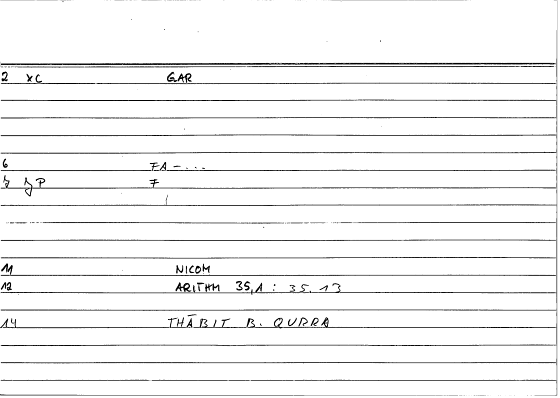 2 xC GAR
6 FA - . . .
P F
11 NICOM
12 ARITHM 35,1 : 35.13
14 THĀBIT B. QURRA